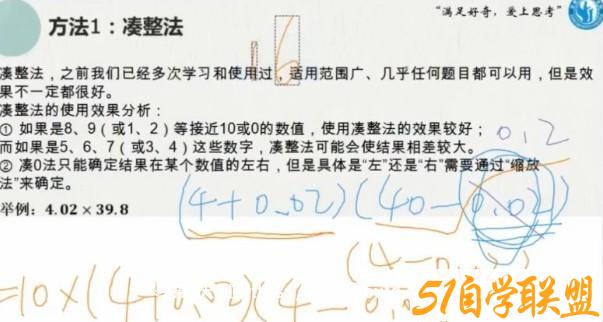 “满足好奇，爱上思考”
方法1：凑整法
16
凑整法，之前我们已经多次学习和使用过，适用范围广、几乎任何题目都可以用，但是效
果不一定都很好。
凑整法的使用效果分析：
① 如果是8、9（或1、2）等接近10或0的数值，使用凑整法的效果较好；
0.2
而如果是5、6、7（或3、4）这些数字，凑整法可能会使结果相差较大。
② 凑0法只能确定结果在某个数值的左右，但是具体是“左”还是“右”需要通过“缩放
法”来确定。
举例：4.02×39.8
(4+0.02)(40-0.02)
(4-0.
=10×(4+0.02)(4-0.0
51自学联盟